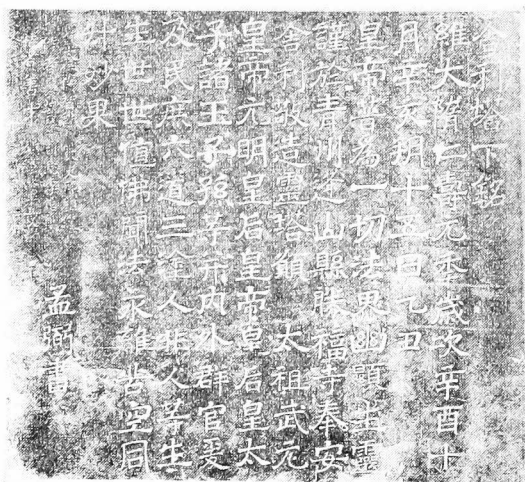 舍利塔下銘
維大隋仁壽元年歲次辛酉十
月辛亥朔十五日乙丑
皇帝普為一切法界幽顯生靈
謹於青州逢山縣勝福寺奉安
舍利敬造靈塔願 太祖武元
皇帝元明皇后皇帝皇后皇太
子諸王子孫等并內外群官爰
及民庶六道三途人非人等生
生世世值佛聞法永離苦空同
升妙果
孟弼書